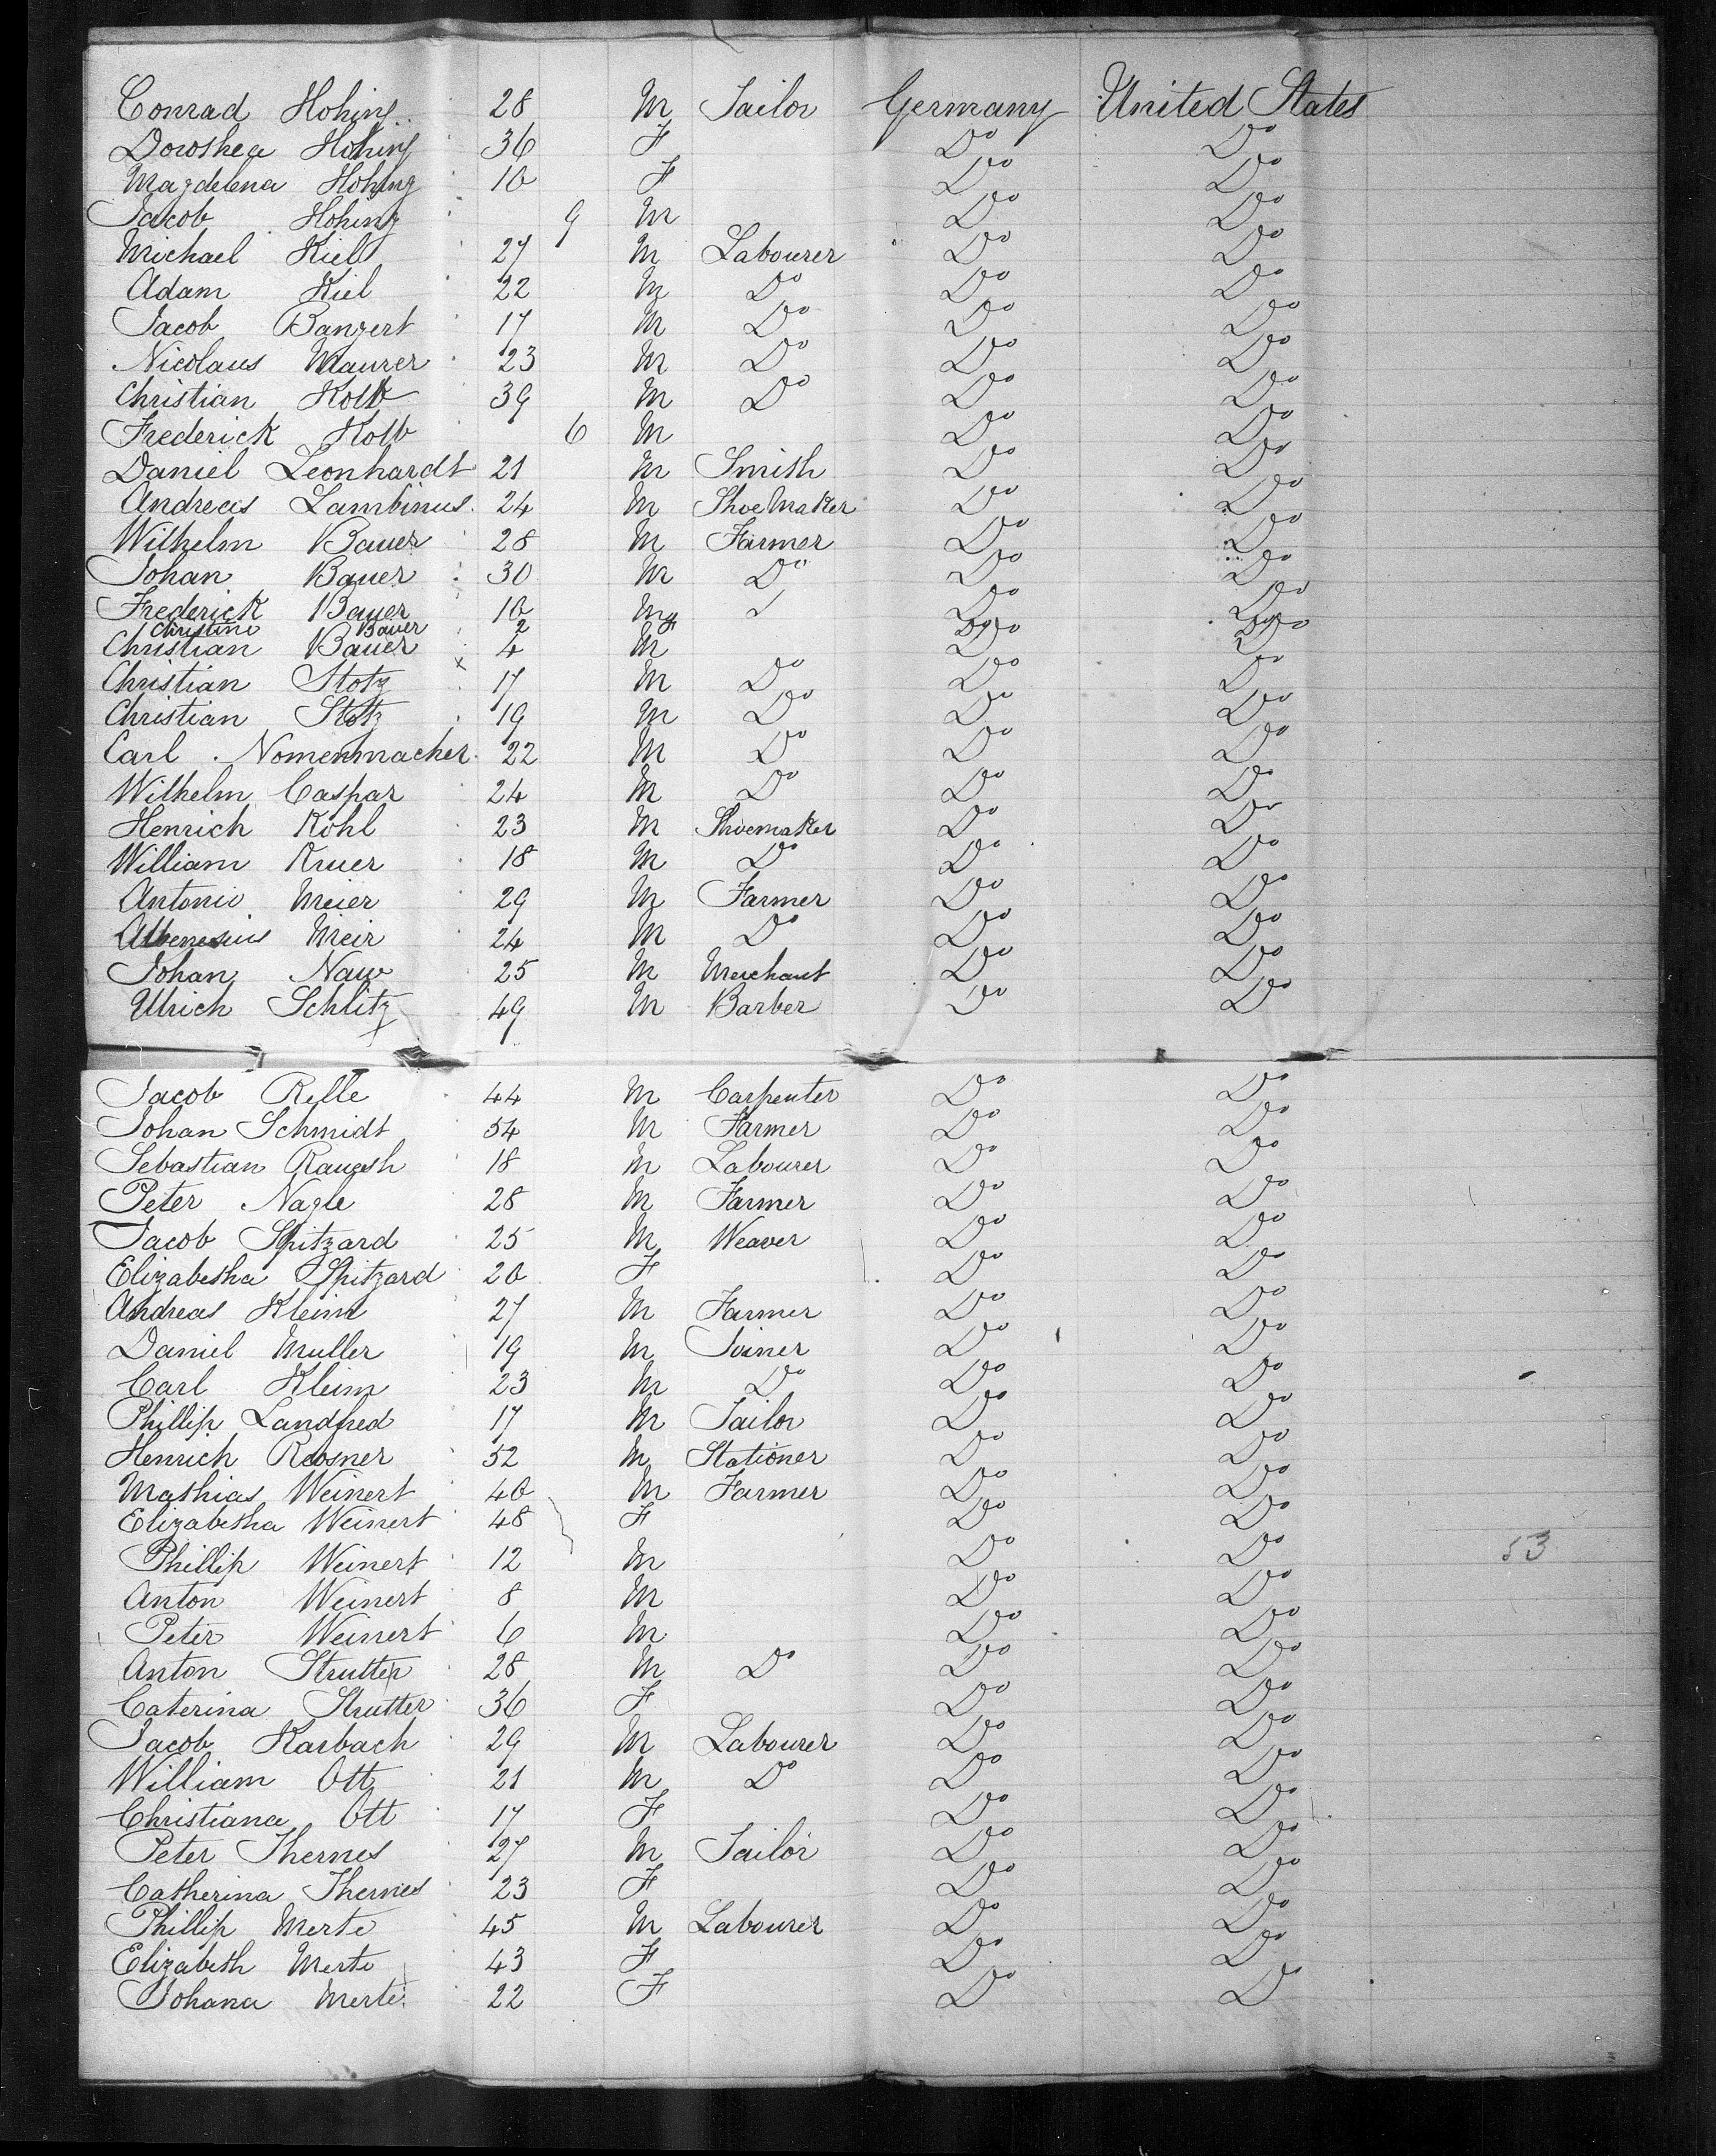 Conrad Hohing 28 M Tailor Germany United States
Dorothea Hohing 36 F Do Do
Magdelena Hohing 10 F Do Do
Jacob Hohing 9 M Do Do
Michael Kiel 27 M Labourer Do Do
Adam Kiel 22 M Do Do Do
Jacob Bangert 17 M Do Do Do
Nicolaus Maurer 23 M Do Do Do
Christian Kolb 39 M Do Do Do
Frederick Kolb 6 M Do Do
Daniel Leonhardt 21 M Smith Do Do
Andreas Lambinus 24 M ShoeMaker Do Do
Wilhelm Bauer 28 M Farmer Do Do
Johan Bauer 30 M Do Do Do
Frederick Bauer 10 M Do Do
Christine Bauer 2 F Do Do
Christian Bauer 4 M Do Do
Christian Stotz 17 M Do Do Do
Christian Stotz 19 M Do Do Do
Carl Nomenmacher 22 M Do Do Do
Wilhelm Caspar 24 M Do Do Do
Henrich Kohl 23 M Shoemaker Do Do
William Kruer 18 M Do Do Do
Antonio Meier 29 M Farmer Do Do
Meir 24 M Do Do Do
Johan Naw 25 M Merchant Do Do
Ulrich Schlitz 49 M Barber Do Do
Jacob Relle 44 M Carpenter Do Do
Johan Schmidt 54 M Farmer Do Do
Sebastian 18 M Labourer Do Do
Peter Nagle 28 M Farmer Do Do
Jacob Spitzard 25 M Weaver Do Do
Elizabetha Spitzard 20 F Do Do
Andreas Kleim 27 M Farmer Do Do
Daniel Muller 19 M Joiner Do Do
Carl Kleim 23 M Do Do Do
Phillip Landfred 17 M Tailor Do Do
Henrich Rosner 52 M Stationer Do Do
Mathias Weinert 40 M Farmer Do Do
Elizabetha Weinert 48 F Do Do
Phillip Weinert 12 M Do Do 53
Anton Weinert 8 M Do Do
Peter Weinert 6 M Do Do
Anton Strutter 28 M Do Do Do
Caterina Strutter 36 F Do Do
Jacob Karbach 29 M Labourer Do Do
William Ott 21 M Do Do Do
Christiana Ott 17 F Do Do
Peter Thernes 27 M Tailor Do Do
Catherina Thernes 23 F Do Do
Phillip Merte 45 M Labourer Do Do
Elizabeth Merte 43 F Do Do
Johana Merte 22 F Do Do